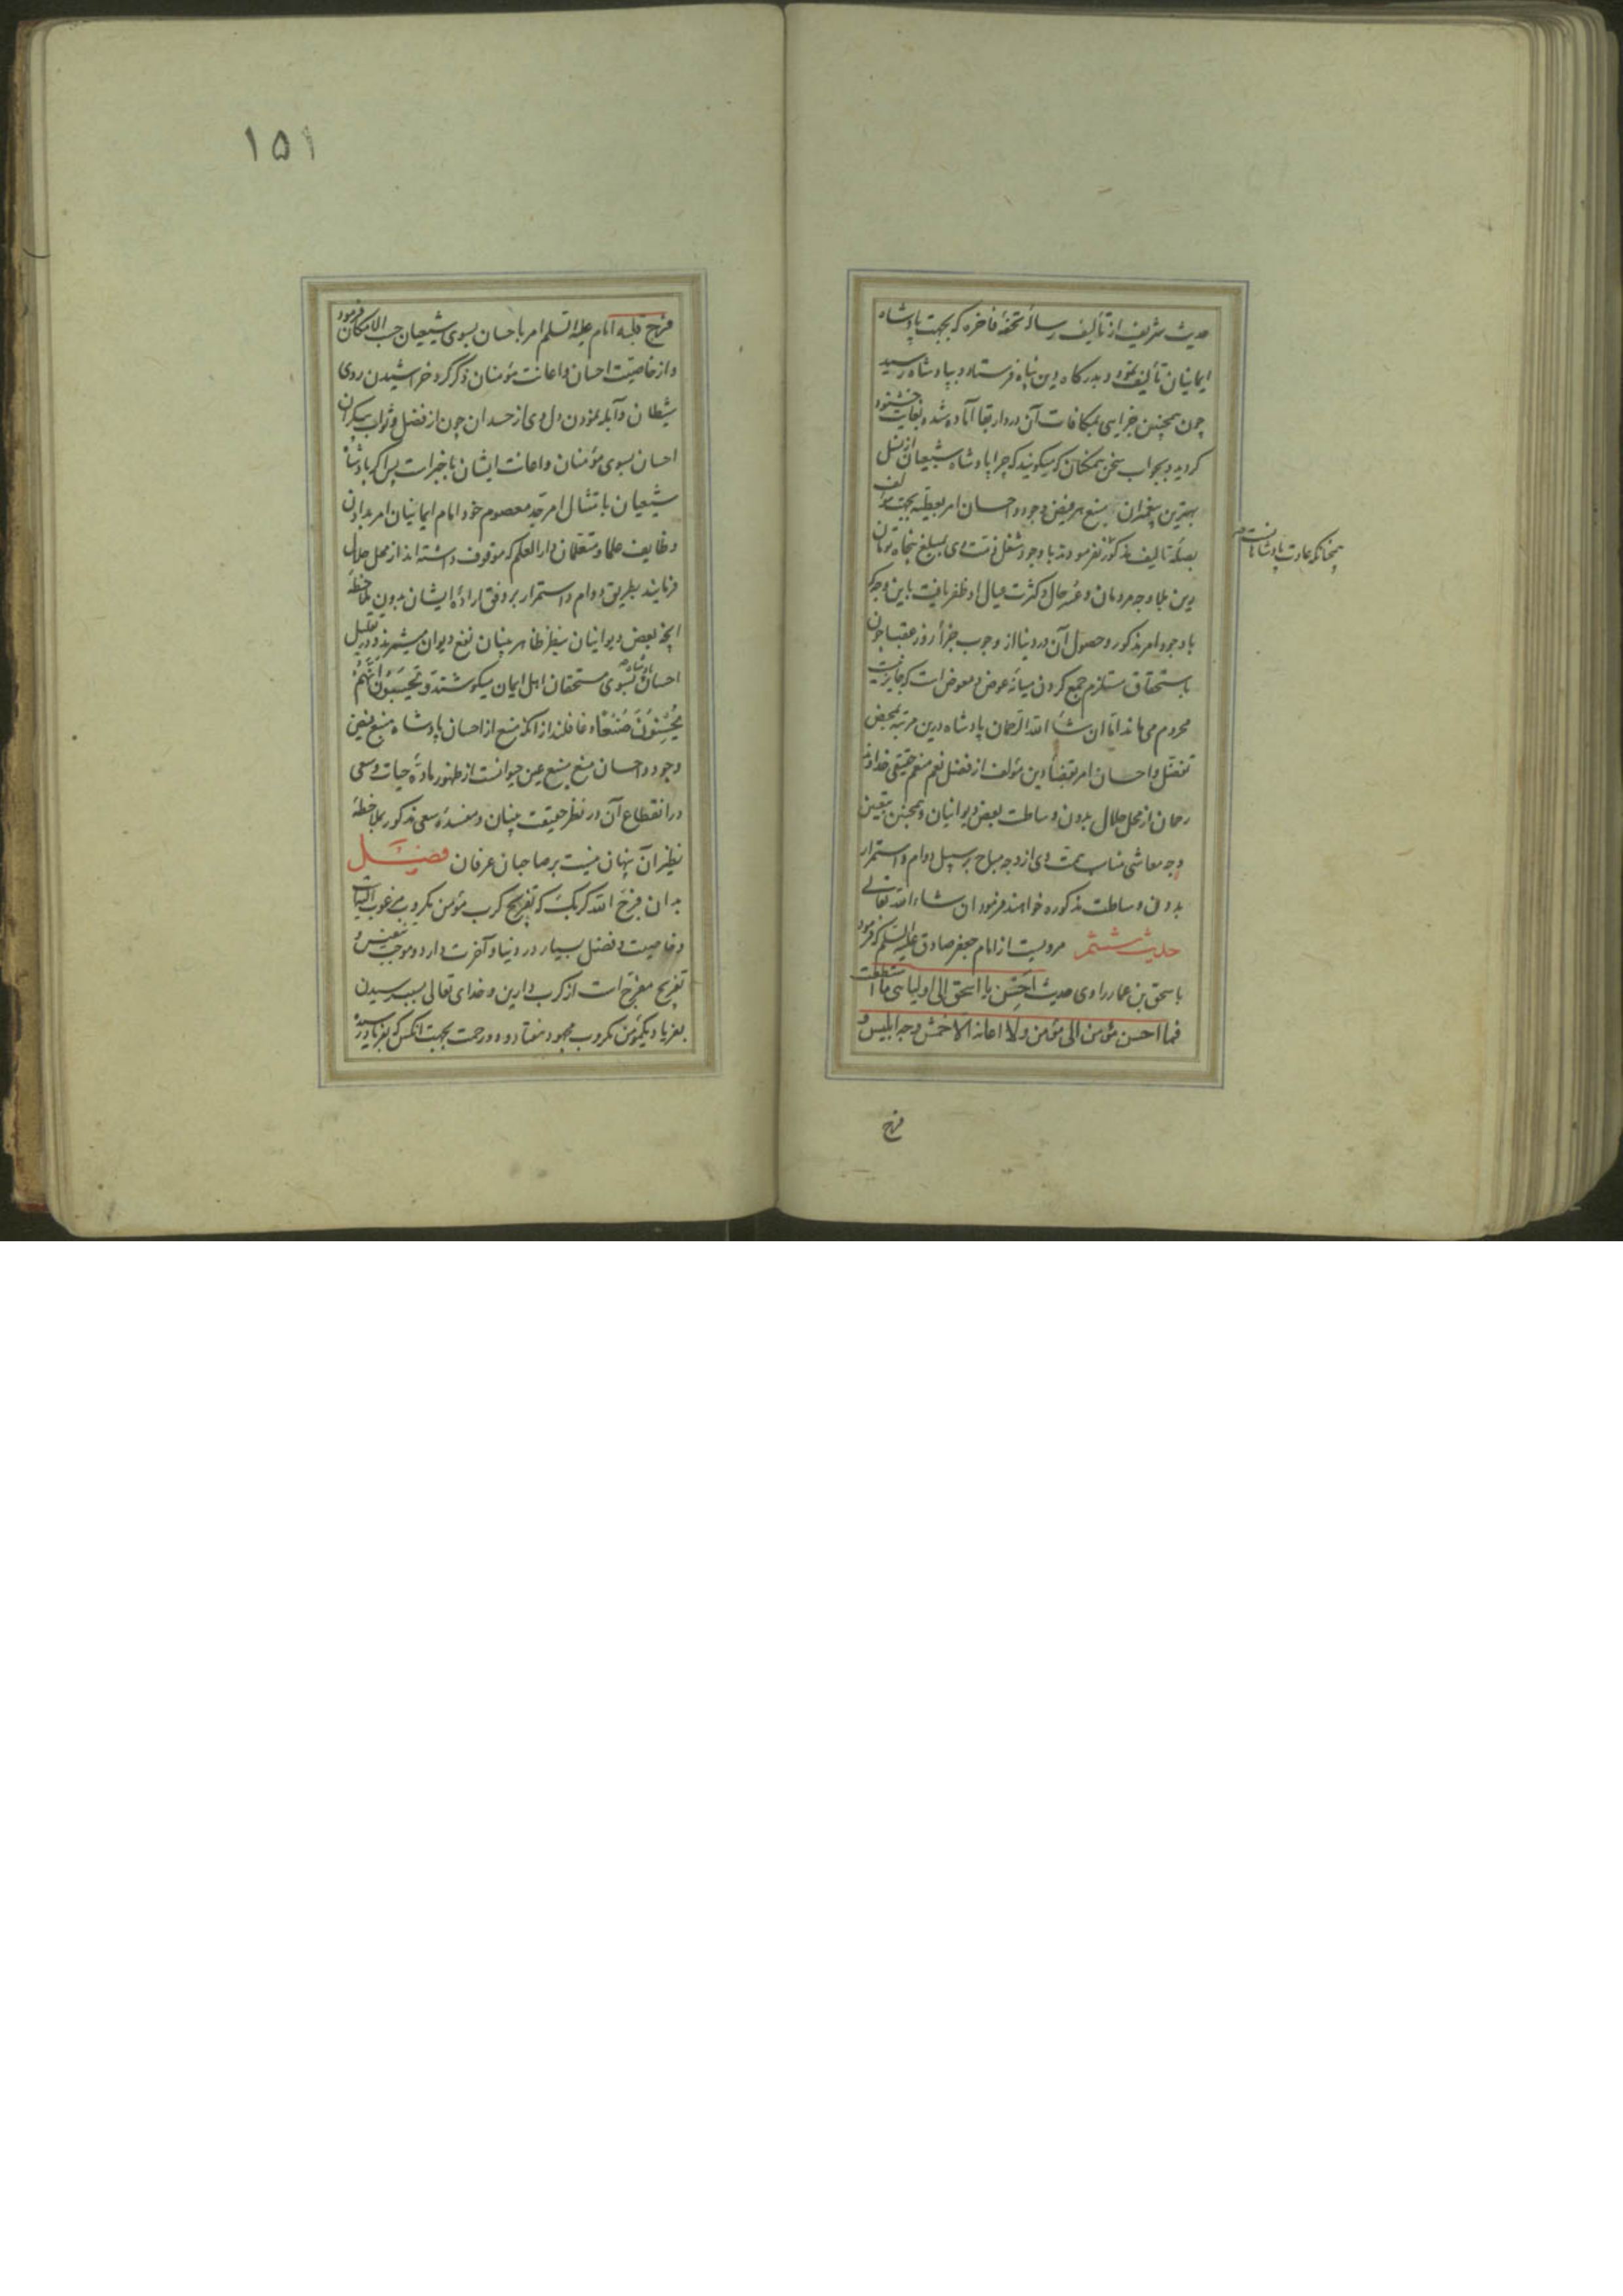 حدیث شریف از تألیف رسالهٔ تحفهٔ فاخره که بجهت پادشاه
ایمانیان تألیف نموده بدرگاه دین پناه فرستاد و بپادشاه رسید
چون همچنین جزایی بمکافات آن در دار بقا آماده شده بغایت خشنود
گردید و بجواب سخن همگنان که میگویند که چرا پادشاه شیعیان از نسل
بهترین پیغمبران منبع هر فیض وجود و احسان امر بعطیه بجهت مؤلف
بصلهٔ تألیف مذکور نفرمودند با وجود شغل ذمت وی بمبلغ پنجاه تومان
همچنانکه عادت پادشاهانست
دین طلبا وجه مردمان و عسر حال و کثرت عیال او ظفر یافت باین وجه که
با وجود امر مذکور و حصول آن در دنیا از وجوب جزأ روز عقبا چون
باستحقاق مستلزم جمع کردن میانهٔ عوض و معوض است که جایز نیست
محروم می ماند اما ان شأ الله الرحمان پادشاه درین مرتبه بمحض
تفضل و احسان امر بقضأ دین مؤلف از فضل نعم منعم حقیقی خداوند
رحمان از محل حلال بدون وساطت بعض دیوانیان و همچنین بتعیین
وجه معاشی مناسبت وی از وجه مباح بر سبیل دوام و استمرار
بدون وساطت مذکوره خواهند فرمود ان شاء الله تعالی
حدیث ششم مرویست از امام جعفر صادق علیه السلم که فرمود
باسحق بن عمار راوی حدیث احسن یا اسحق الی اولیائی ما استطعت
فما احسن مؤمن الی مؤمن ولا اعانه الا خمش وجه ابلیس و
قرح
١٥١
قرح قلبه امام علیه السلم امر باحسان بسوی شیعیان حسب الامکان فرمود
و از خاصیت احسان و اعانت مؤمنان ذکر کرد خراشیدن روی
شیطان و آبله نمودن دل وی از حسد آن چون از فضل و ثواب بیکران
احسان بسوی مؤمنان و اعانت ایشان باخبرات پس اگر پادشاه
شیعیان بامتثال امر جد معصوم خود امام ایمانیان امر بدادن
وظایف علما و متعلمان دار العلم که موقوف داشته اند از محل حلال
فرمایند بطریق دوام و استمرار بر وفق ارادهٔ ایشان بدون ملاحظهٔ
آنچه بعض دیوانیان بنظر ظاهر بینان نفع دیوان میشمرند و در تقلیل
احسان پادشاه بسوی مستحقان اهل ایمان میکوشند و یحسبون انهم
یحسنون صنعا و غافلند از آنکه منع از احسان پادشاه منبع فیض
وجود و احسان منع منبع عین حیوانست از ظهور مادهٔ حیات و سعی
در انقطاع آن در نظر حقیقت بینان و مفسدهٔ سعی مذکور بملاحظهٔ
نظیر آن پنهان نیست بر صاحبان عرفان فصل
بدان فرج الله کربک که تفریج کرب مؤمن مکروب مرغوب
و خاصیت و فضل بسیار در دنیا و آخرت دارد و موجب تنفیس و
تفریج مفرج است از کرب دارین و خدای تعالی بسبب رسیدن
بفریاد یکمؤمن مکروب مجهود هفتاد و دو رحمت بجهت آنکس که بفریاد رسیده